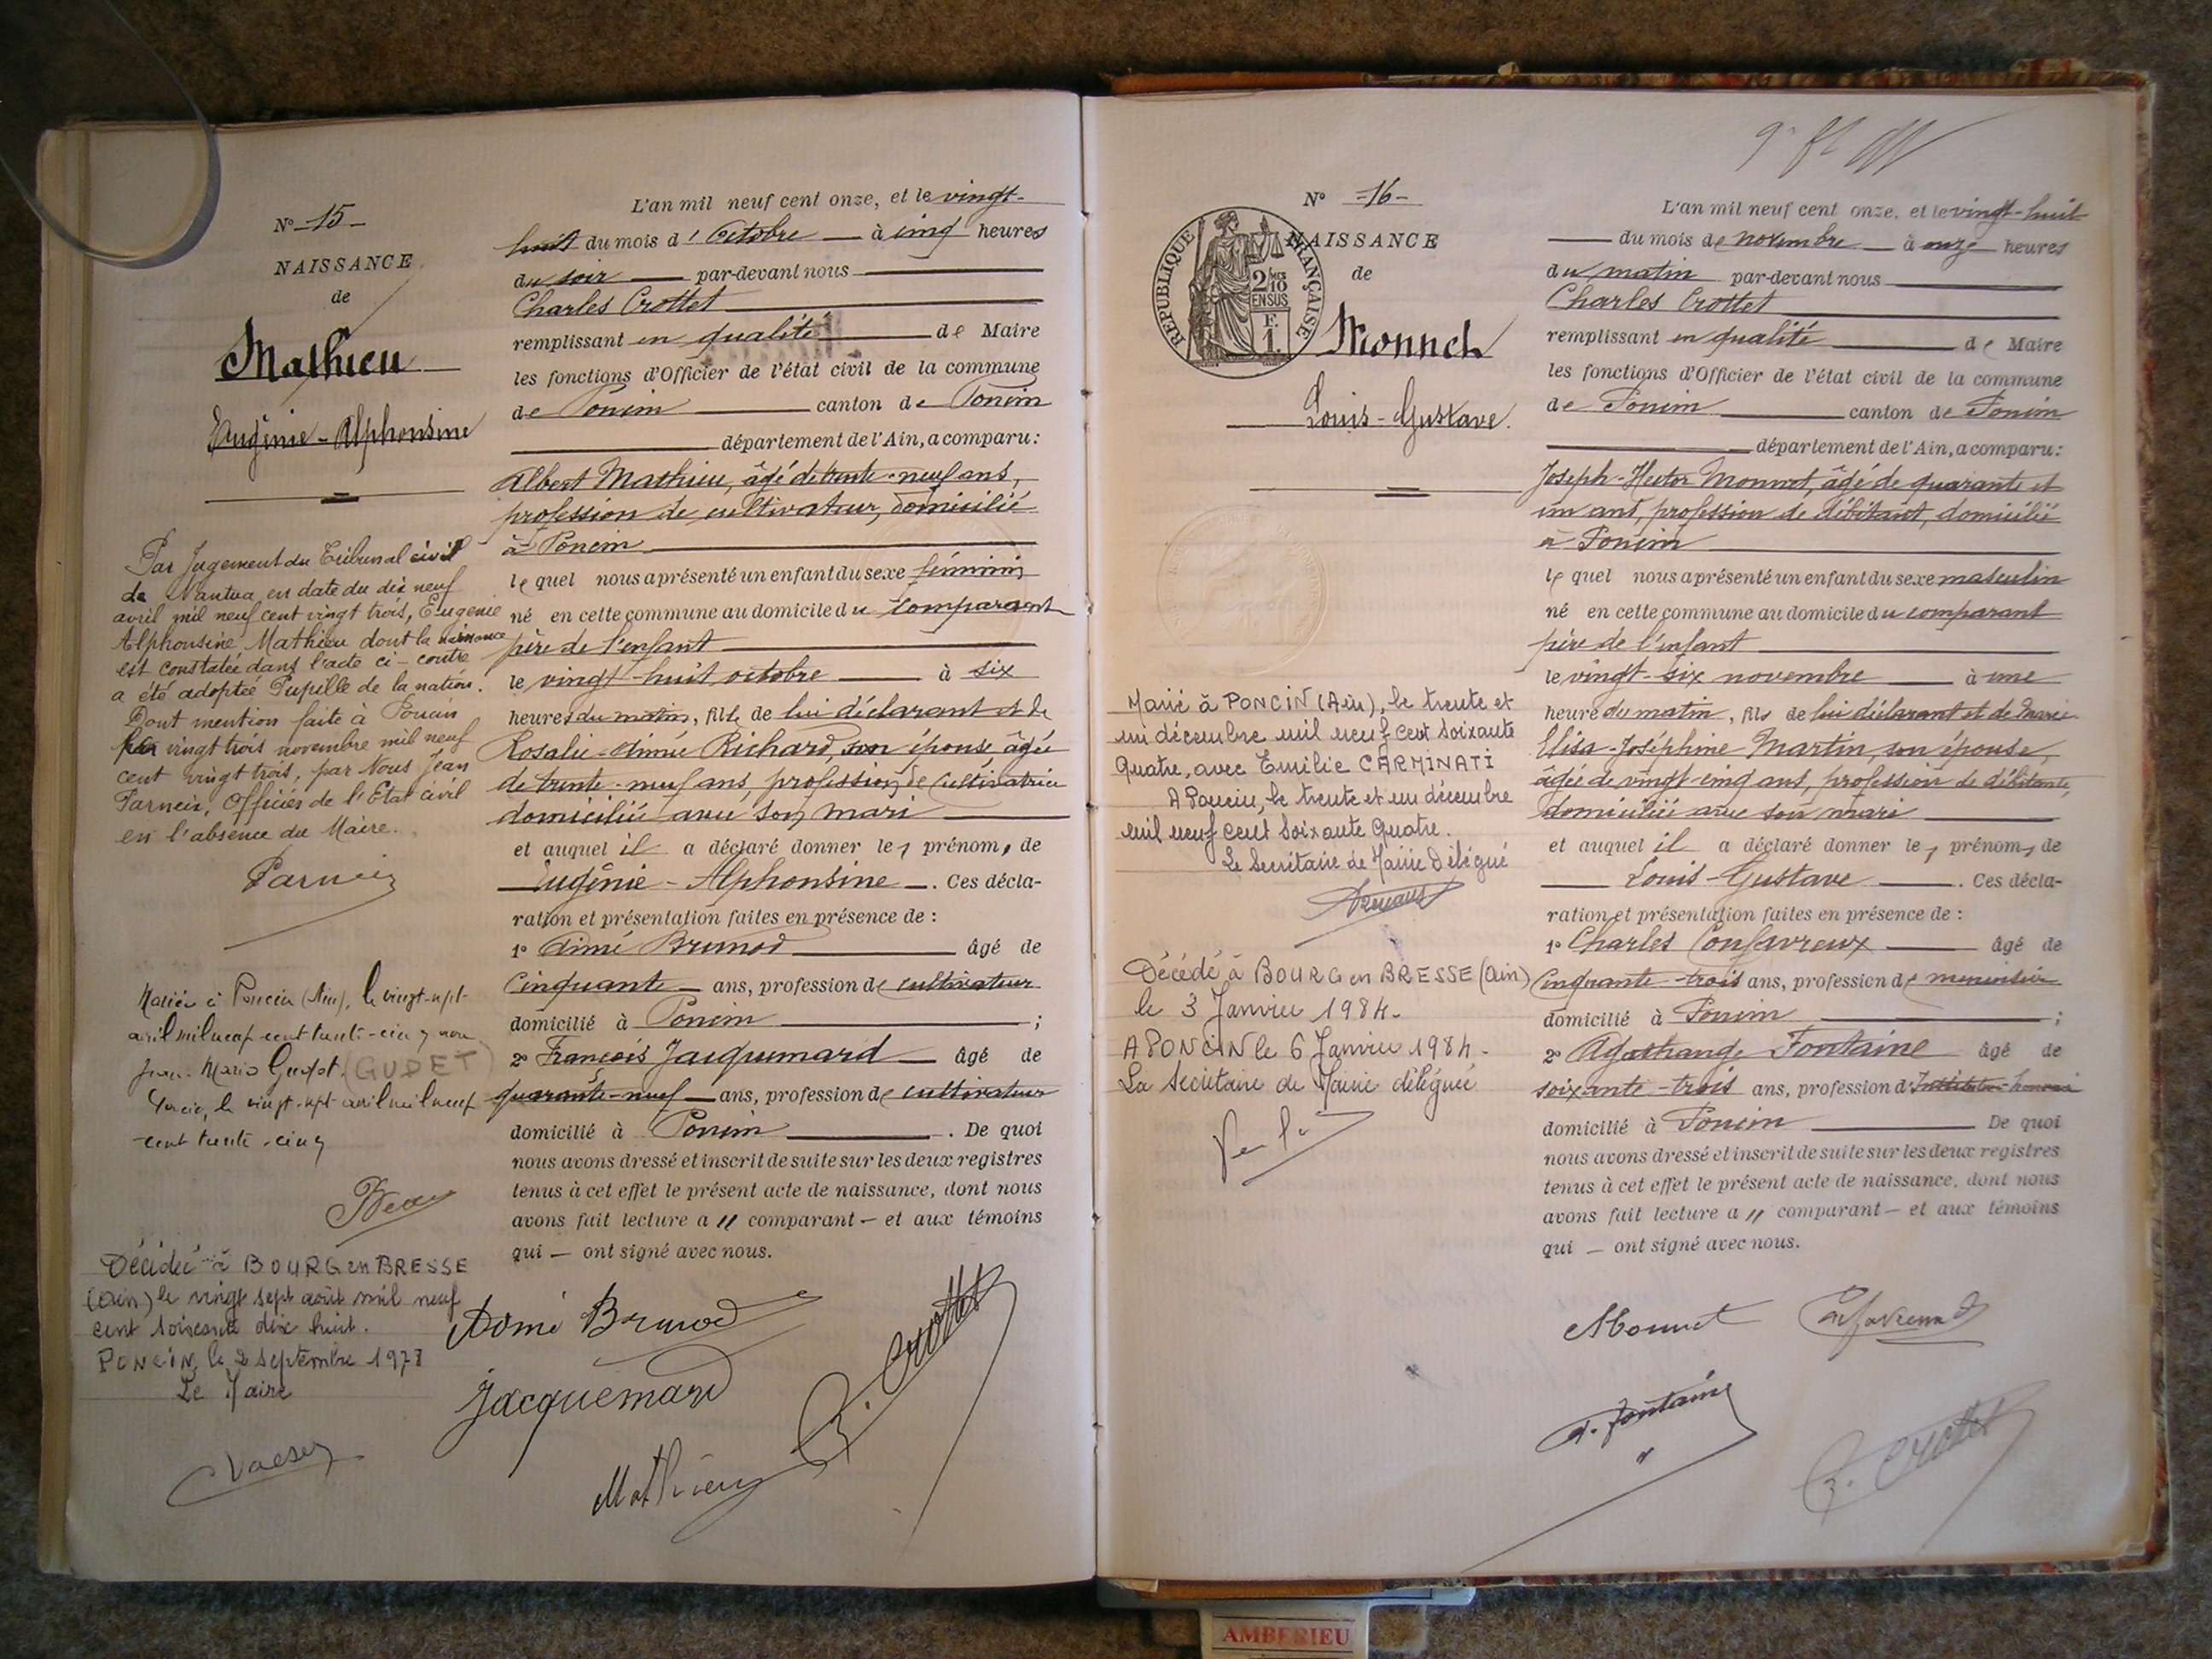 N° 15
NAISSANCE
de
Mathieu
Eugénie-Alphonsine
Par Jugement du Tribunal civil
de Nantua en date du dix neuf
avril mil neuf cent vingt trois, Eugenie
Alphonsine Mathieu dont la naissance
est constatée dans l'acte ci-contre
a été adoptée Pupille de la nation.
Dont mention faite à Poncin
vingt trois novembre mil neuf
cent vingt trois, par Nous Jean
Parneix, Officier de l'Etat civil
en l'absence du Maire.
Parneix
Mariée à Poncin (Ain), le vingt-sept
avril mil neuf cent trente-cinq avec
Marie (GUDET)
Poncin, le vingt-sept avril mil neuf
cent trente-cinq
Décédée à BOURG en BRESSE
(Ain) le vingt sept août mil neuf
cent soixante dix huit.
PONCIN, le 2 septembre 1978
Le Maire
L'an mil neuf cent onze, et le vingt-
huit du mois d'Octobre à cinq heures
du soir par-devant nous
Charles Crottet
remplissant en qualité de Maire
les fonctions d'Officier de l'état civil de la commune
de Poncin canton de Poncin
département de l'Ain, a comparu:
Albert Mathieu, âgé de trente-neuf ans,
profession de cultivateur, domicilié
à Poncin
lequel nous a présenté un enfant du sexe féminin
né en cette commune au domicile du comparant
père de l'enfant
le vingt-huit octobre à six
heures du matin, fille de lui déclarant et de
Rosalie-Aimée Richard, son épouse âgée
de trente-neuf ans, profession de cultivatrice
domiciliée avec son mari
et auquel il a déclaré donner les prénoms de
Eugénie-Alphonsine. Ces décla-
ration et présentation faites en présence de :
1° Aimé Brunod âgé de
Cinquante ans, profession de cultivateur
domicilié à Poncin ;
2° François Jacquemard âgé de
quarante-neuf ans, profession de cultivateur
domicilié à Poncin . De quoi
nous avons dressé et inscrit de suite sur les deux registres
tenus à cet effet le présent acte de naissance, dont nous
avons fait lecture a 11 comparant — et aux témoins
qui — ont signé avec nous.
Aimé Brunod
C. Crottet
Jacquemard
Mathieu
N° 16
RÉPUBLIQUE FRANÇAISE
2/10 EN SUS
F.
1.
NAISSANCE
de
Monnet
Louis-Gustave.
Marié à PONCIN (Ain), le trente et
un décembre mil neuf cent soixante
quatre, avec Emilie CARMINATI
A Poncin, le trente et un décembre
mil neuf cent soixante quatre.
Le Secrétaire de Mairie Délégué
Décédé à BOURG en BRESSE (Ain)
le 3 Janvier 1984.
A PONCIN le 6 Janvier 1984.
La Secrétaire de Mairie déléguée
L'an mil neuf cent onze, et le vingt-huit
du mois de novembre à onze heures
du matin par-devant nous
Charles Crottet
remplissant en qualité de Maire
les fonctions d'Officier de l'état civil de la commune
de Poncin canton de Poncin
département de l'Ain, a comparu:
Joseph-Hector Monnet, âgé de quarante et
un ans, profession de débitant, domicilié
à Poncin
lequel nous a présenté un enfant du sexe masculin
né en cette commune au domicile du comparant
père de l'enfant
le vingt-six novembre à une
heure du matin, fils de lui déclarant et de Marie
Elisa-Joséphine Martin, son épouse,
âgée de vingt-cinq ans, profession de débitante,
domiciliée avec son mari
et auquel il a déclaré donner les prénoms de
Louis-Gustave. Ces décla-
ration et présentation faites en présence de :
1° Charles Confavreux âgé de
Cinquante-trois ans, profession de menuisier
domicilié à Poncin ;
2° Agathange Fontaine âgé de
soixante-trois ans, profession d'Instituteur honoraire
domicilié à Poncin De quoi
nous avons dressé et inscrit de suite sur les deux registres
tenus à cet effet le présent acte de naissance, dont nous
avons fait lecture a 11 comparant — et aux témoins
qui — ont signé avec nous.
Monnet Confavreux
A. Fontaine
C. Crottet
AMBERIEU